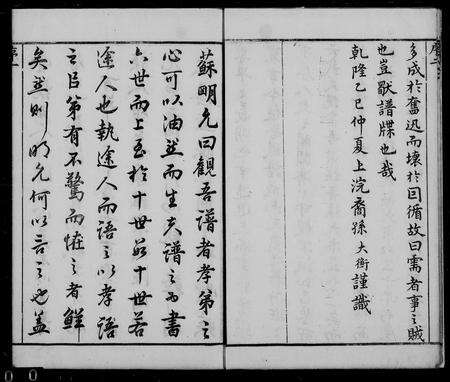 多成於奮迅而壞於因循故曰需者事之賊
也豈獸譜牒也哉
乾隆乙巳仲夏上浣裔孫大衡謹識
蘇明允曰觀吾譜者孝弟之
心可以油然而生夫譜之為書
六世而上至於十世數十世若
途人也執途人而語之以孝語
之以弟有不驚而恠之者鮮
矣然則明允何以言之也蓋